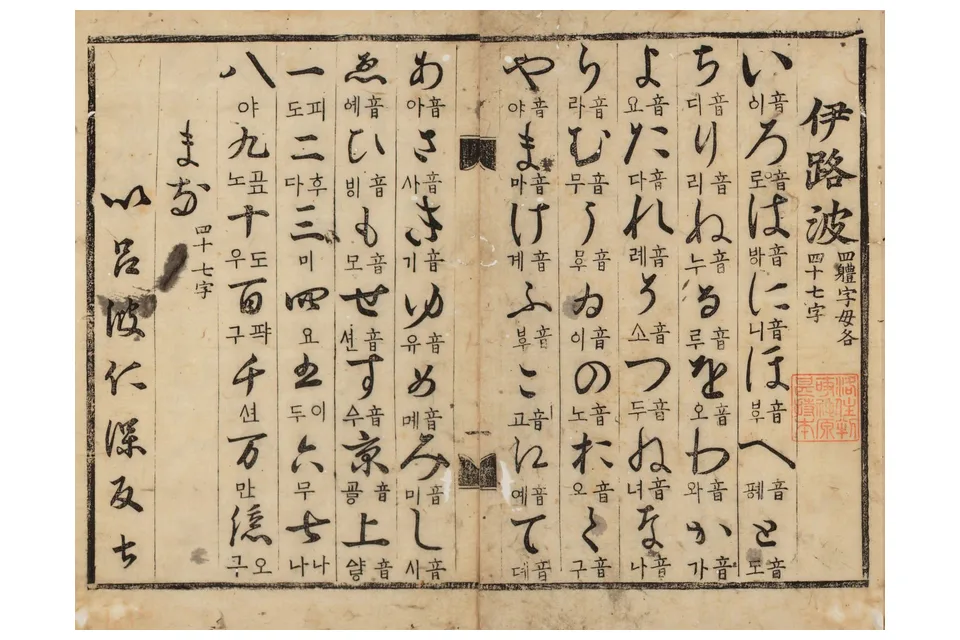 伊路波 四體字母各四十七字
い 이音 ろ 로音 は 音 に 니音 ほ 音 へ 音 と 도音
ち 디音 り 리音 ぬ 누音 る 루音 を 오音 わ 와音 か 가音
よ 요音 た 다音 れ 례音 そ 소音 つ 두音 ね 녀音 な 나音
ら 라音 む 무音 う 音 ゐ 이音 の 노音 お 오音 く 구音
や 야音 ま 마音 け 계音 ふ 音 こ 고音 え 예音 て 뎨音
あ 아音 さ 사音 き 기音 ゆ 유音 め 몌音 み 미音 し 시音
ゑ 예音 ひ 音 も 모音 せ 션音 す 수音 京 音 上 音
一 피도 二 후다 三 미 四 요 五 이두 六 무 七 나나
八 야 九 노 十 도우 百 퍅구 千 션 万 만 億 오구
まな 四十七字
以呂波仁保反止